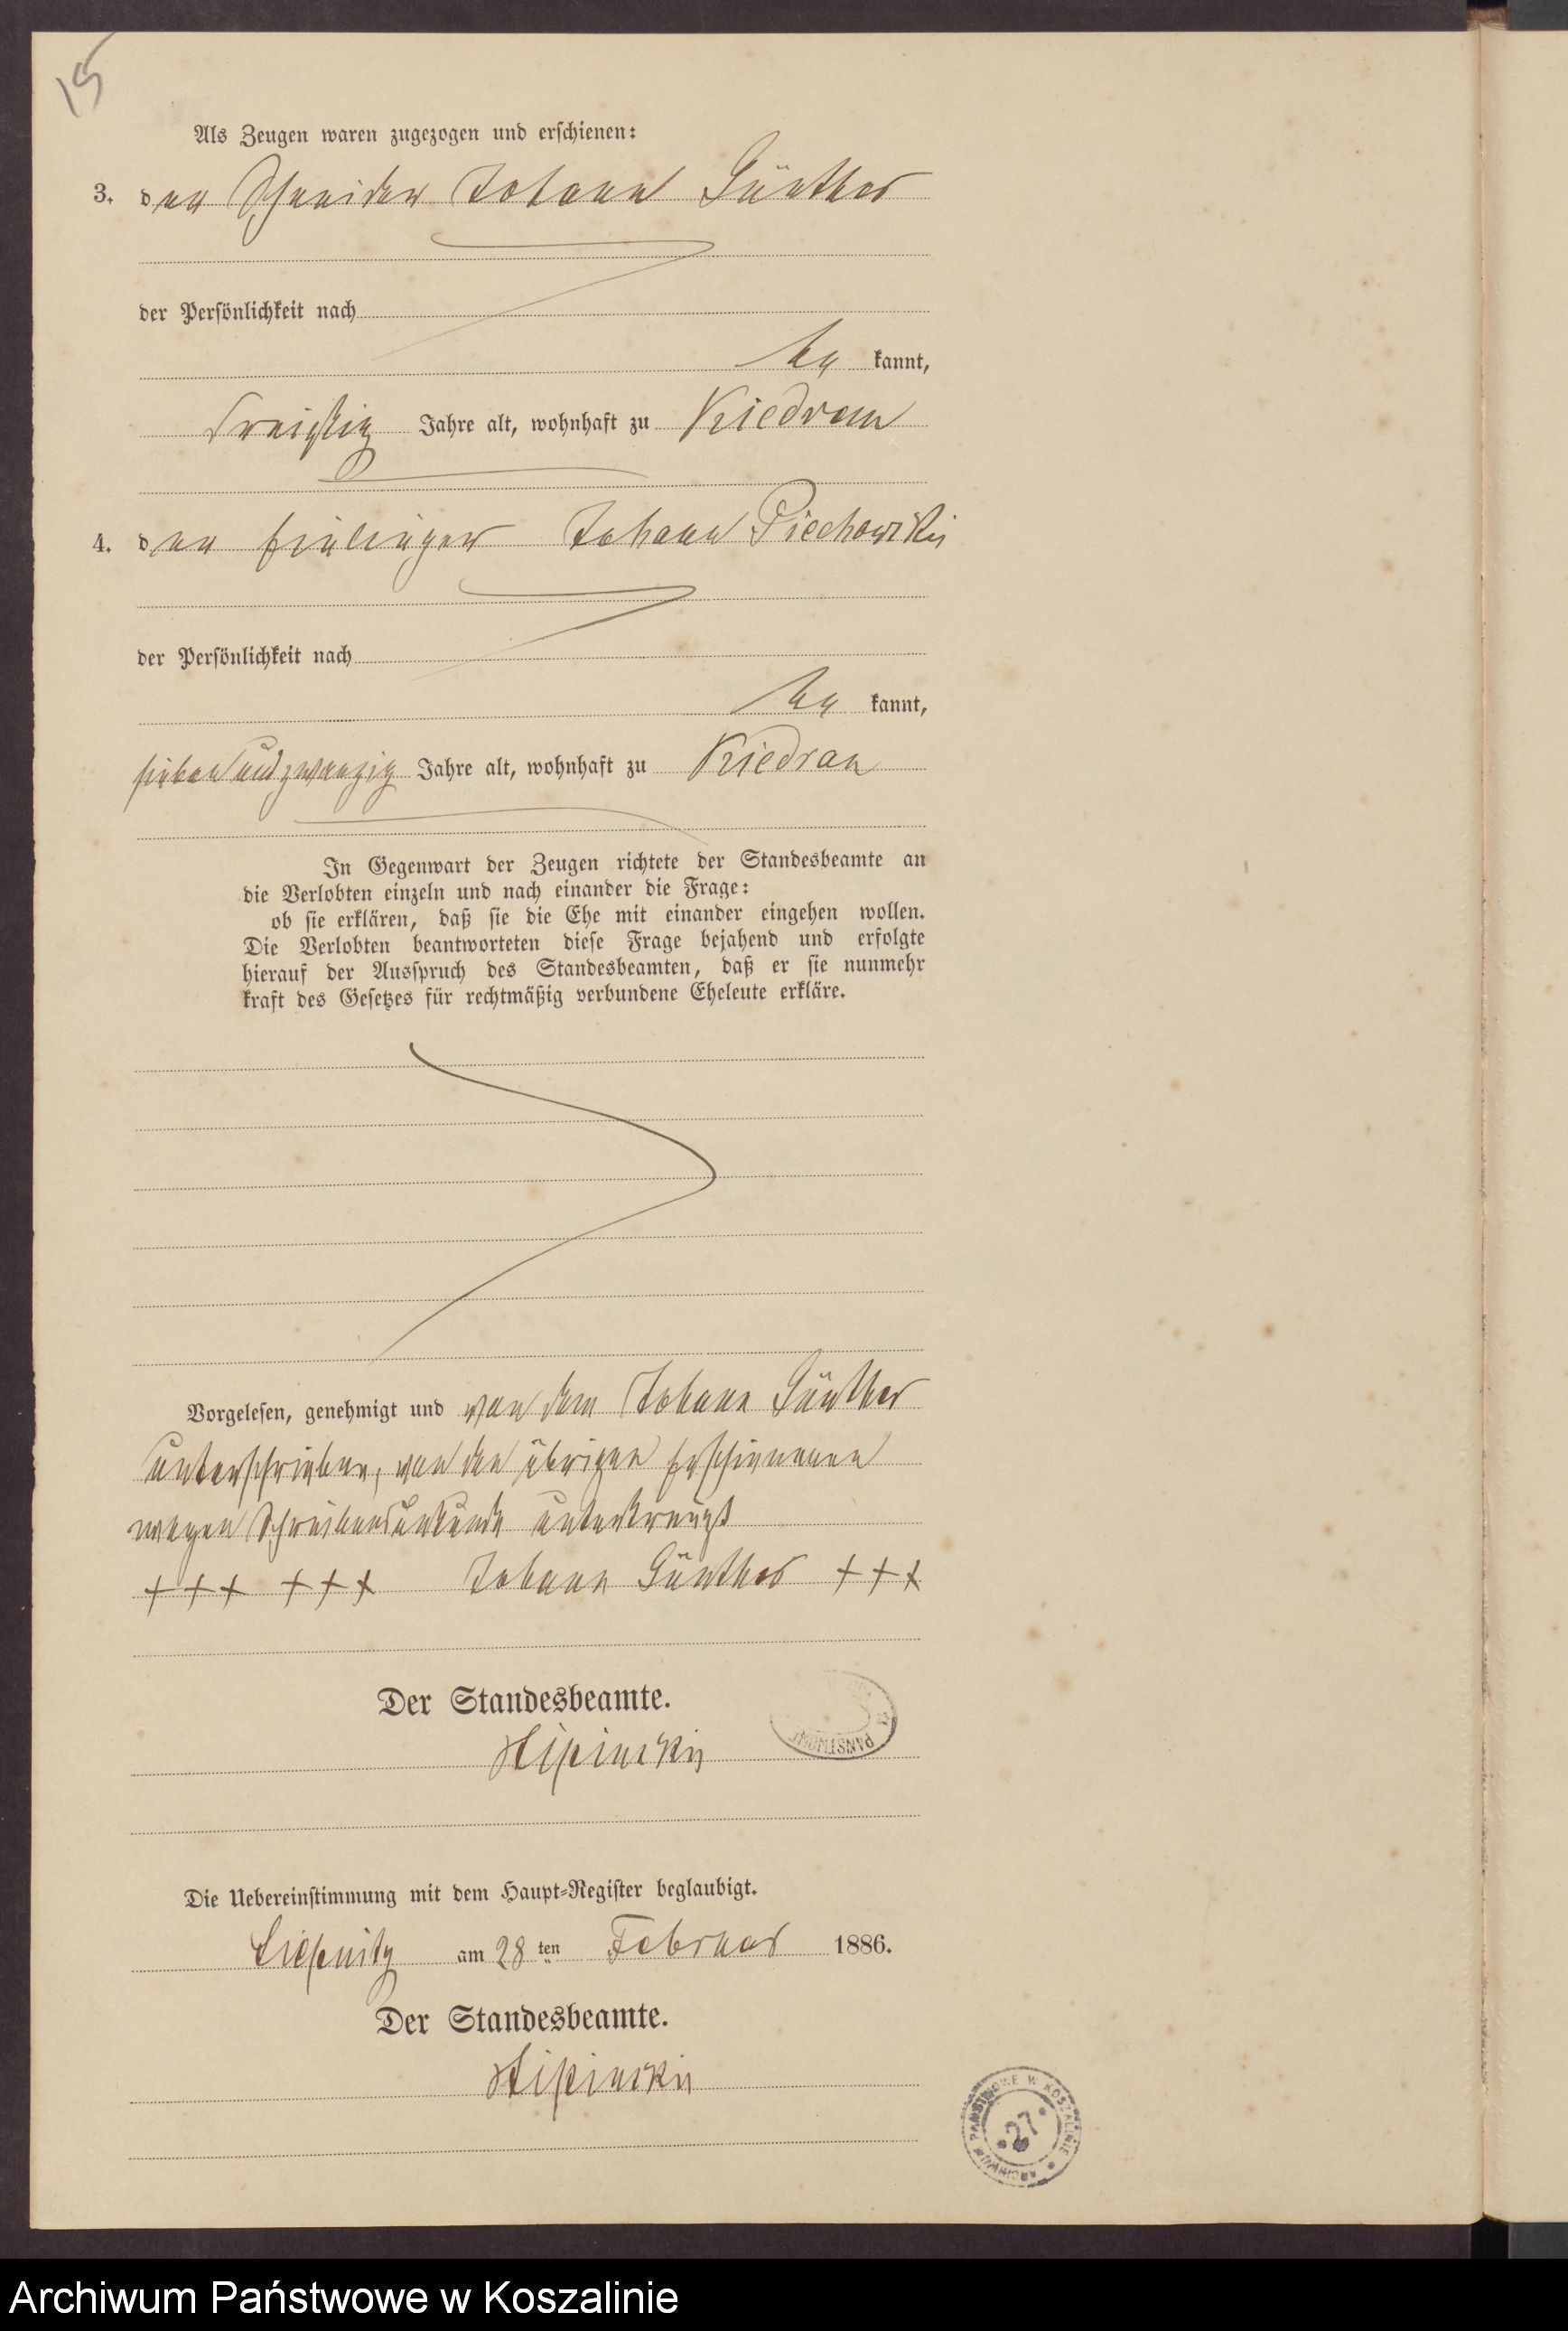 15
Als Zeugen waren zugezogen und erschienen:
3. der Schneider Johann Günther
der Persönlichkeit nach
be kannt,
dreißig Jahre alt, wohnhaft zu Kiedrau
4. der Einlieger Johann Piechowski
der Persönlichkeit nach
be kannt,
siebenundzwanzig Jahre alt, wohnhaft zu Kiedrau
In Gegenwart der Zeugen richtete der Standesbeamte an
die Verlobten einzeln und nach einander die Frage:
ob sie erklären, daß sie die Ehe mit einander eingehen wollen.
Die Verlobten beantworteten diese Frage bejahend und erfolgte
hierauf der Ausspruch des Standesbeamten, daß er sie nunmehr
kraft des Gesetzes für rechtmäßig verbundene Eheleute erkläre.
Vorgelesen, genehmigt und von dem Johann Günther
unterschrieben, von den übrigen Erschienenen
wegen Schreibensunkunde unterkreuzt
+++ +++ Johann Günther +++
Der Standesbeamte.
PAŃSTWOWE
Die Uebereinstimmung mit dem Haupt-Register beglaubigt.
Liepnitz am 28 ten Februar 1886.
Der Standesbeamte.
ARCHIWUM PAŃSTWOWE W KOSZALINIE
27
Archiwum Państwowe w Koszalinie